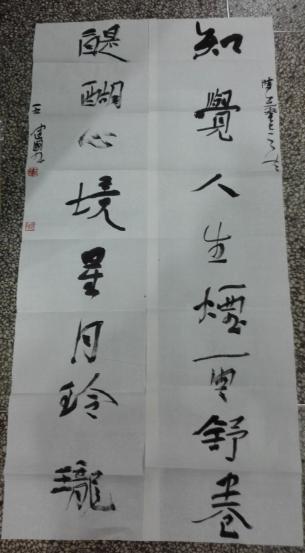 知覺人生煙雲舒卷
醍醐心境星月玲瓏